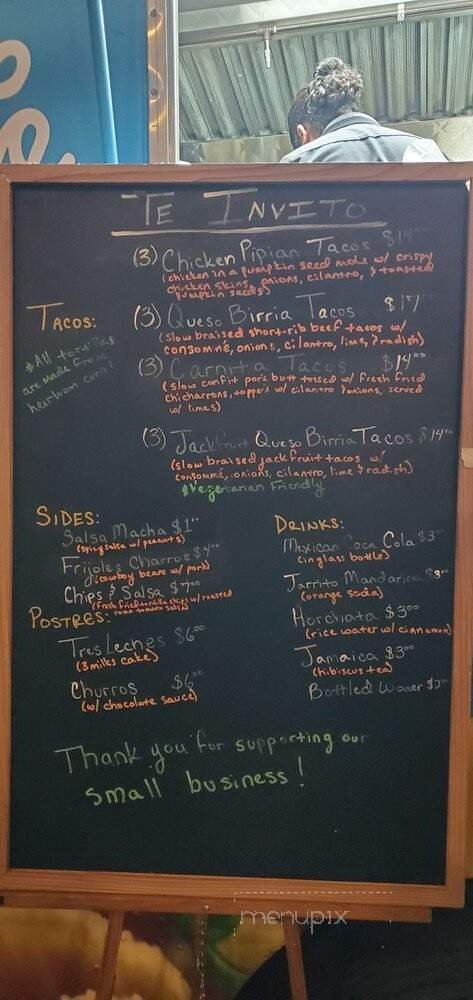 TE INVITO
(3) Chicken Pipian Tacos $14⁰⁰
(chicken in a pumpkin seed mole w/ crispy
chicken skins, onions, cilantro, & toasted
pumpkin seeds)
TACOS:
*All tortillas
are made from
heirloom corn!
(3) Queso Birria Tacos $17⁰⁰
(slow braised short-rib beef tacos w/
consommé, onions, cilantro, lime, & radish)
(3) Carnita Tacos $14⁰⁰
(slow confit pork butt tossed w/ fresh fried
chicharrons, topped w/ cilantro & onions, served
w/ limes)
(3) Jackfruit Queso Birria Tacos $14⁰⁰
(slow braised jackfruit tacos w/
consommé, onions, cilantro, lime & radish)
*Vegetarian Friendly
SIDES:
Salsa Macha $1⁰⁰
(spicy salsa w/ peanuts)
Frijoles Charros $4⁰⁰
(cowboy beans w/ pork)
Chips & Salsa $7⁰⁰
(fresh fried tortilla chips w/ roasted
roma tomato salsa)
POSTRES:
Tres Leches $6⁰⁰
(3 milks cake)
Churros $6⁰⁰
(w/ chocolate sauce)
DRINKS:
Mexican Coca Cola $3⁰⁰
(in glass bottle)
Jarrito Mandarina $3⁰⁰
(orange soda)
Horchata $3⁰⁰
(rice water w/ cinnamon)
Jamaica $3⁰⁰
(hibiscus tea)
Bottled Water
Thank you for supporting our
small business!
menupix